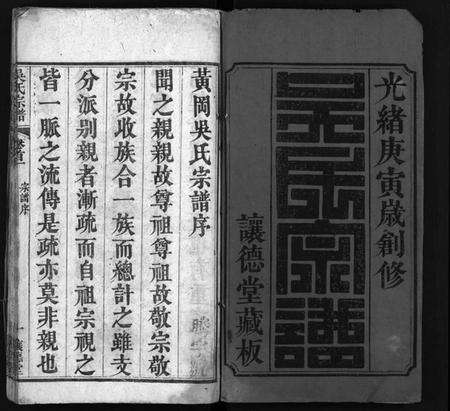 光緒庚寅歲創修
吳氏宗譜
讓德堂藏板
黃岡吳氏宗譜序
聞之親親故尊祖尊祖故敬宗敬
宗故收族合一族而總計之雖支
分派别親者漸疏而自祖宗視之
皆一脈之流傳是疏亦莫非親也
吳氏宗譜
卷首一
宗譜序
一